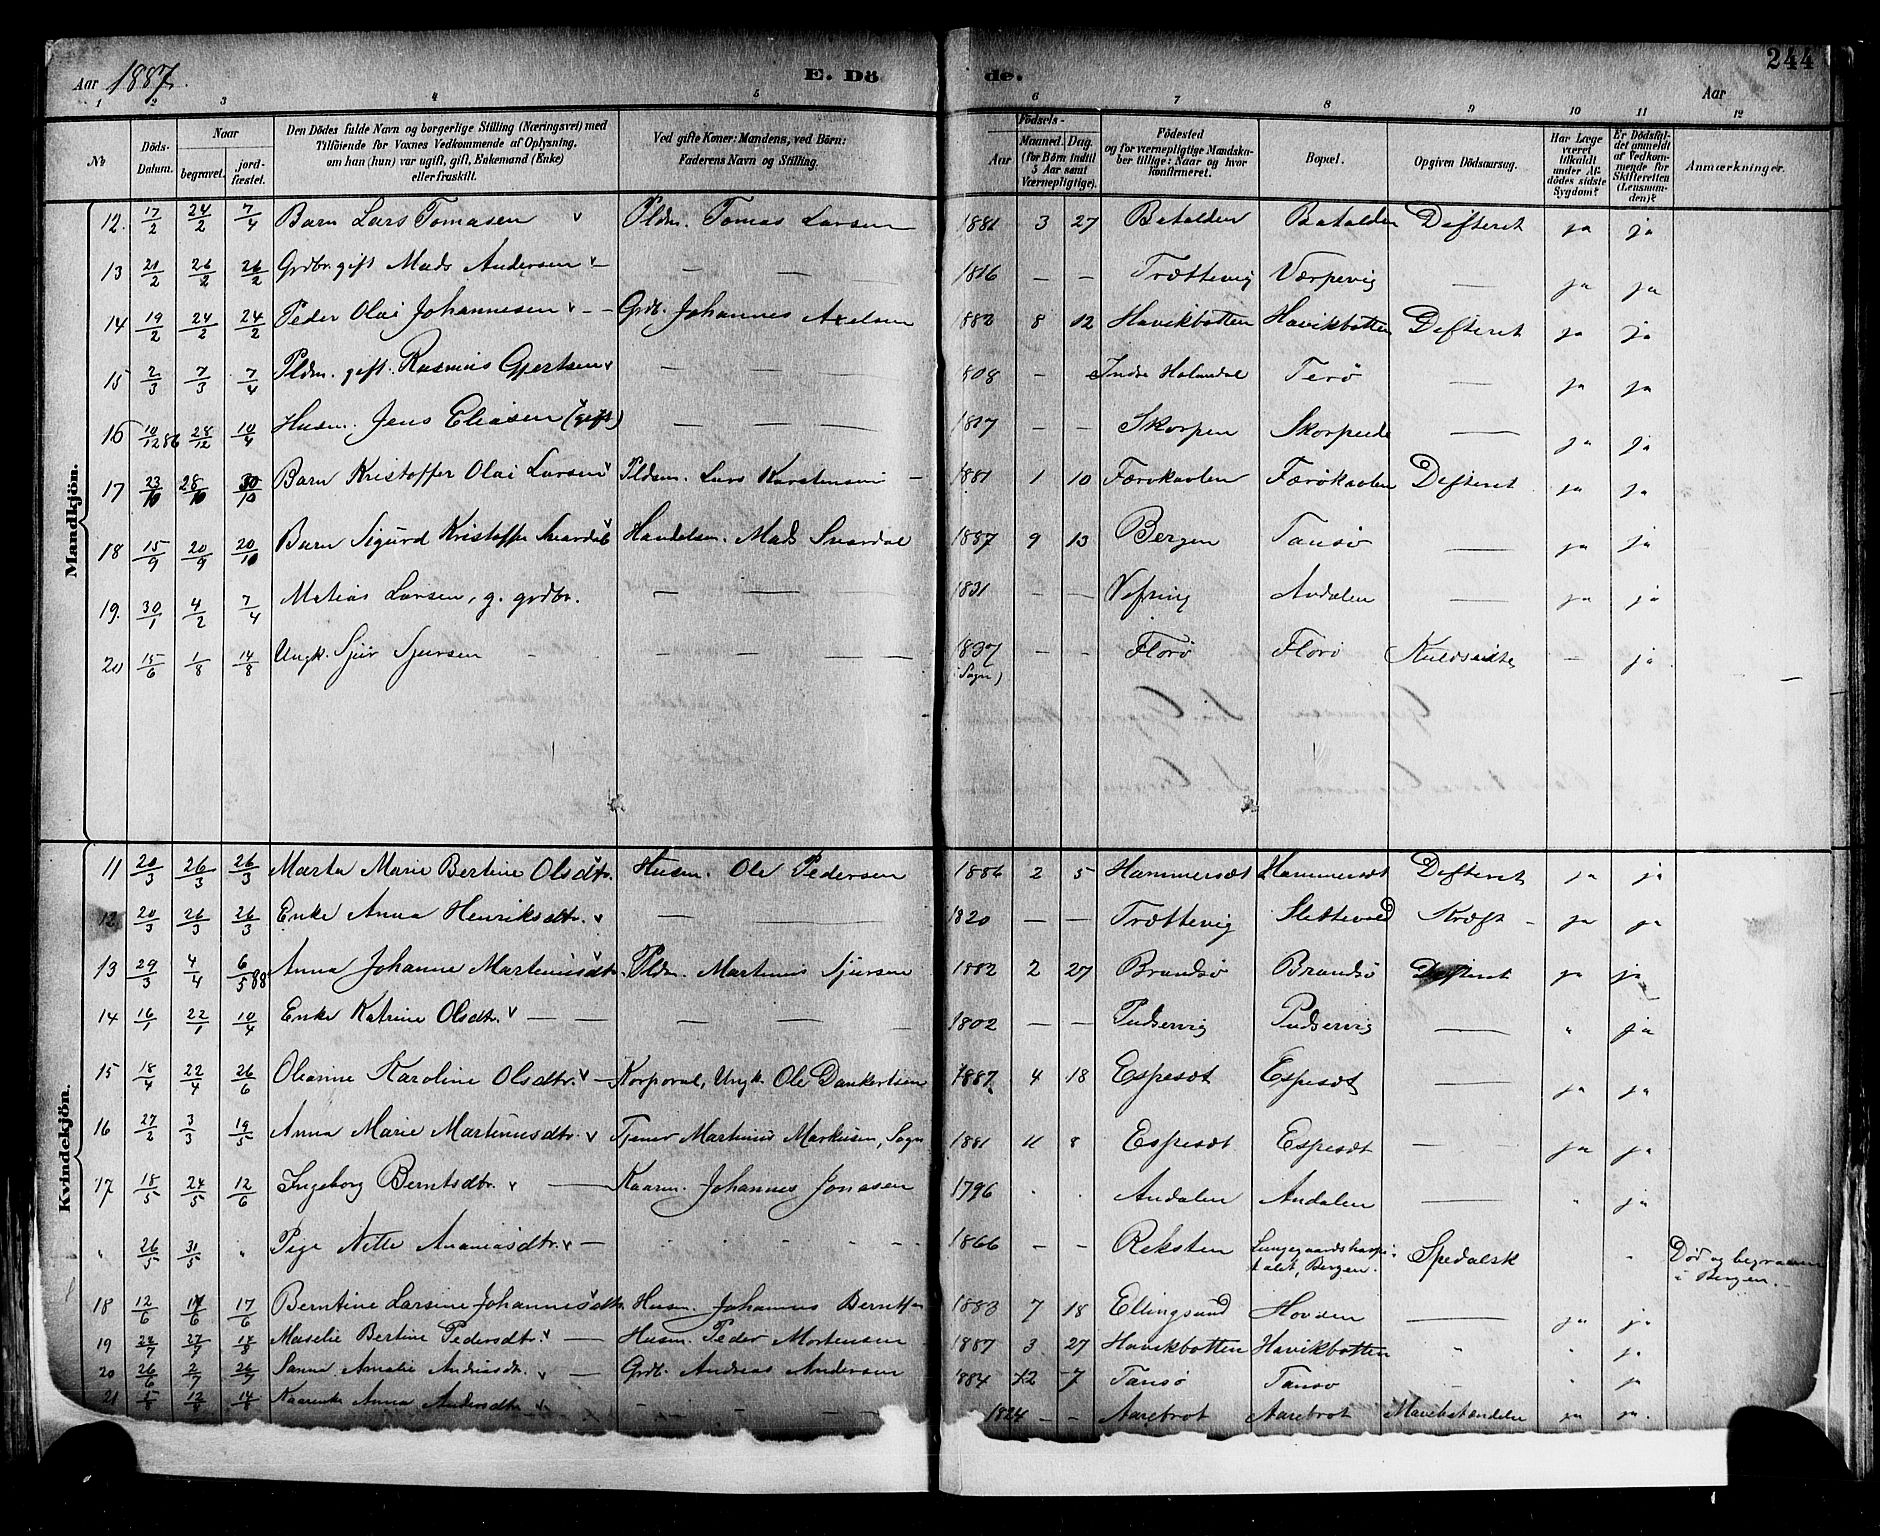 Aar 1887. E. Dö de. Aar 244
1 2 3 4 5 6 7 8 9 10 11 12
No Döds-Datum. Naar begravet. jord-fæstet. Den Dödes fulde Navn og borgerlige Stilling (Næringsvei) med Tilföiende for Voxnes Vedkommende af Oplysning, om han (hun) var ugift, gift, Enkemand (Enke) eller fraskilt. Ved gifte Koner: Mandens, ved Börn: Faderens Navn og Stilling. Födsels- Aar Maaned. Dag. (for Börn indtil 5 Aar samt Værnepligtige). Födested og for værnepligtige Mandskaber tillige: Naar og hvor konfirmeret. Bopæl. Opgiven Dödsaarsag. Har Læge været tilkaldt under Afdödes sidste Sygdom? Er Dödsfaldet anmeldt af Vedkommende for Skifteretten (Lensmanden)? Anmærkninger.
Mandkjön.
12. 17/2 24/2 7/4 Barn Lars Tomasen v Pldm. Tomas Larsen 1881 3 27 Batalden Batalden Defterit ja ja
13 21/2 26/2 26/2 Grdbr. gift Mads Andersen v — — — 1816 — — Trættevig Værpevig — ja ja
14 19/2 24/2 24/2 Peder Olai Johannesen v — Grdb. Johannes Axelsen 1882 8 12 Havikbotten Havikbotten Defterit ja ja
15 2/3 7/3 7/4 Pldm. gift. Rasmus Gjertsen v — — 1808 — Indre Holmedal Terø — ja ja
16 10/12 86 28/12 10/4 Husm. Jens Eliasen (gift) — — — 1817 — — Skorpen Skorpen — ja ja
17 23/10 28/10 30/10 Barn Kristoffer Olai Larsen v Pldsm. Lars Karstensen 1881 1 10 Færøkavlen Færøkavlen Defteret ja ja
18 15/9 20/9 20/10 Barn Sigurd Kristoffer Svardal v Handelsm. Mads Svardal 1887 9 13 Bergen Tansø — ja ja
19. 30/1 4/2 7/4 Matias Larsen, g. grdbr. — — — 1831 — — Vefring Andalen — ja ja
20 15/6 1/8 14/8 Ungk. Sjur Sjursen — — — 1837 (i Sogn) — — Florø Florø — ja
Kvindekjön.
11 20/3 26/3 26/3 Marta Marie Bertine Olsdtr. Husm. Ole Pedersen 1886 2 5 Hammersæt Hammersæt Defteret ja ja
12 20/3 26/3 26/3 Enke Anna Henriksdtr. v — — 1820 — — Trættevig Slettevold Kræft — ja ja
13 29/3 4/4 6/5 88 Anna Johanne Martinusdtr. Pldm. Martinus Sjursen 1882 2 27 Brandsø Brandsø Defteret ja ja
14 16/1 22/1 10/4 Enke Katrine Olsdtr. v — — — 1802 — — Pudservig Pudservig — " ja
15 18/4 22/4 26/6 Oleanne Karoline Olsdtr. v — Korporal, Ungk. Ole Dankertsen 1887 4 18 Espesæt Espesæt — ja ja
16 27/2 3/3 19/5 Anna Marie Martinusdtr. v Tjener Martinus Markusen, Sogn 1881 11 8 Espesæt Espesæt — ja ja
17 18/5 24/5 12/6 Ingeborg Berntsdtr. v — Kaarm. Johannes Jonasen 1796 " " Andalen Andalen — " ja
" 26/5 31/5 " Pige Nille Ananiasdtr. v — 1866 — — Reksten Lungegaardshospitalet, Bergen. Spedalsk " Død og begraven i Bergen.
18 12/6 17/6 17/6 Berntine Larsine Johannesdtr. Husm. Johannes Berntsen 1883 7 18 Ellingsund Hovden ja ja
19 24/7 27/7 14/8 Maselie Bertine Pedersdtr. v — Husm. Peder Mortensen 1887 3 27 Havikbotten Havikbotten " " ja
20 26/6 2/7 26/7 Sanna Amalie Andreasdtr. v — Grdb. Andreas Andersen 1884 12 7 Tansø Tansø — " ja
21 Anna Andersdtr. v — — 1824 — — Aarebrot Aarebrot ja ja